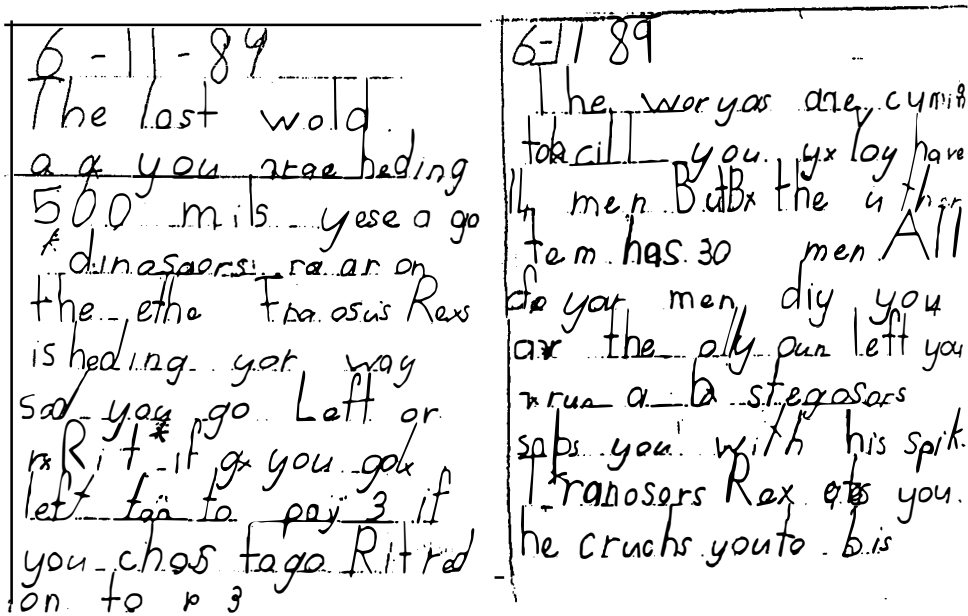 6-11-89
The lost wold.
a a you heding
500 mils yese a go
dinosaors ra ar on
the ethe Tra osus Rexs
is heding yor way
sod you go Left or
Rit if you gok
left tan to pay 3 if
you chos to go Rit red
on to p 3
6-11 89
The woryas are cumin
to cill you. loy have
11 men But the u ther
tem has 30 men All
fo yor men diy you
ar the olly oun left you
run a stegosors
sabs you with his spik.
Tranosors Rex ets you.
he cruchs you to bis